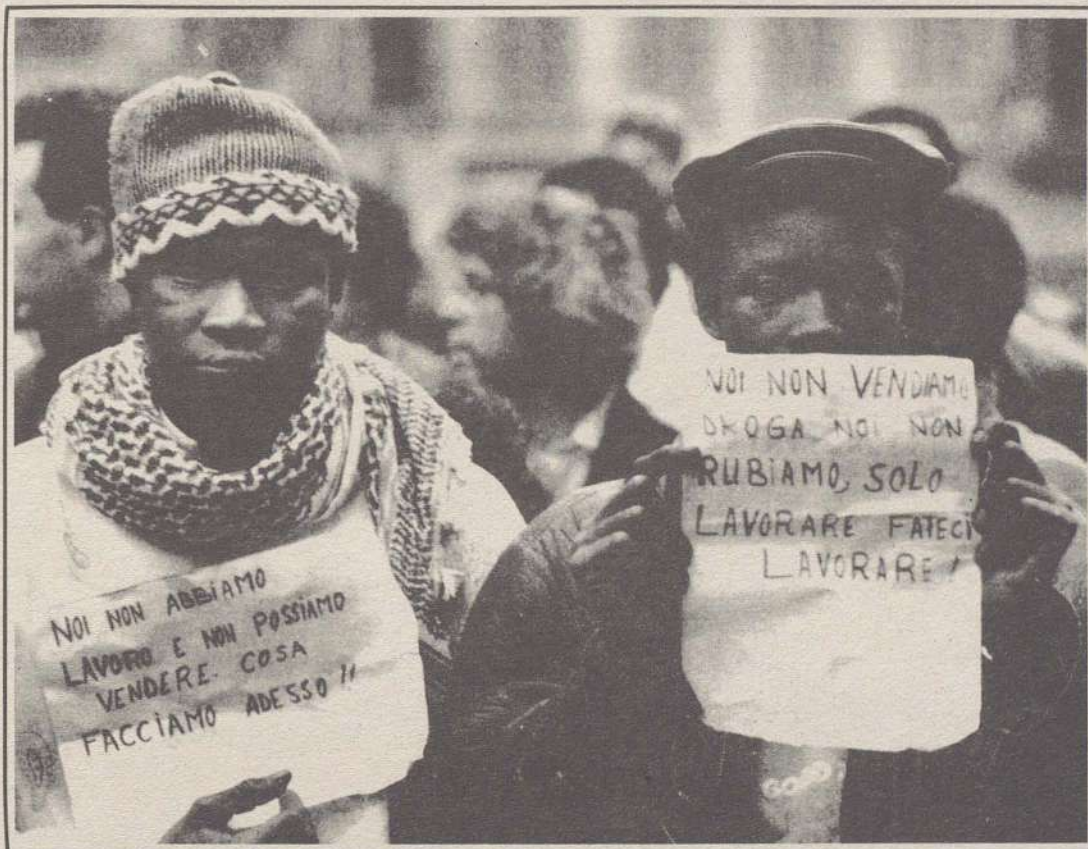 NOI NON ABBIAMO
LAVORO E NON POSSIAMO
VENDERE. COSA
FACCIAMO ADESSO !!
NOI NON VENDIAMO
DROGA NOI NON
RUBIAMO, SOLO
LAVORARE FATECI
LAVORARE!